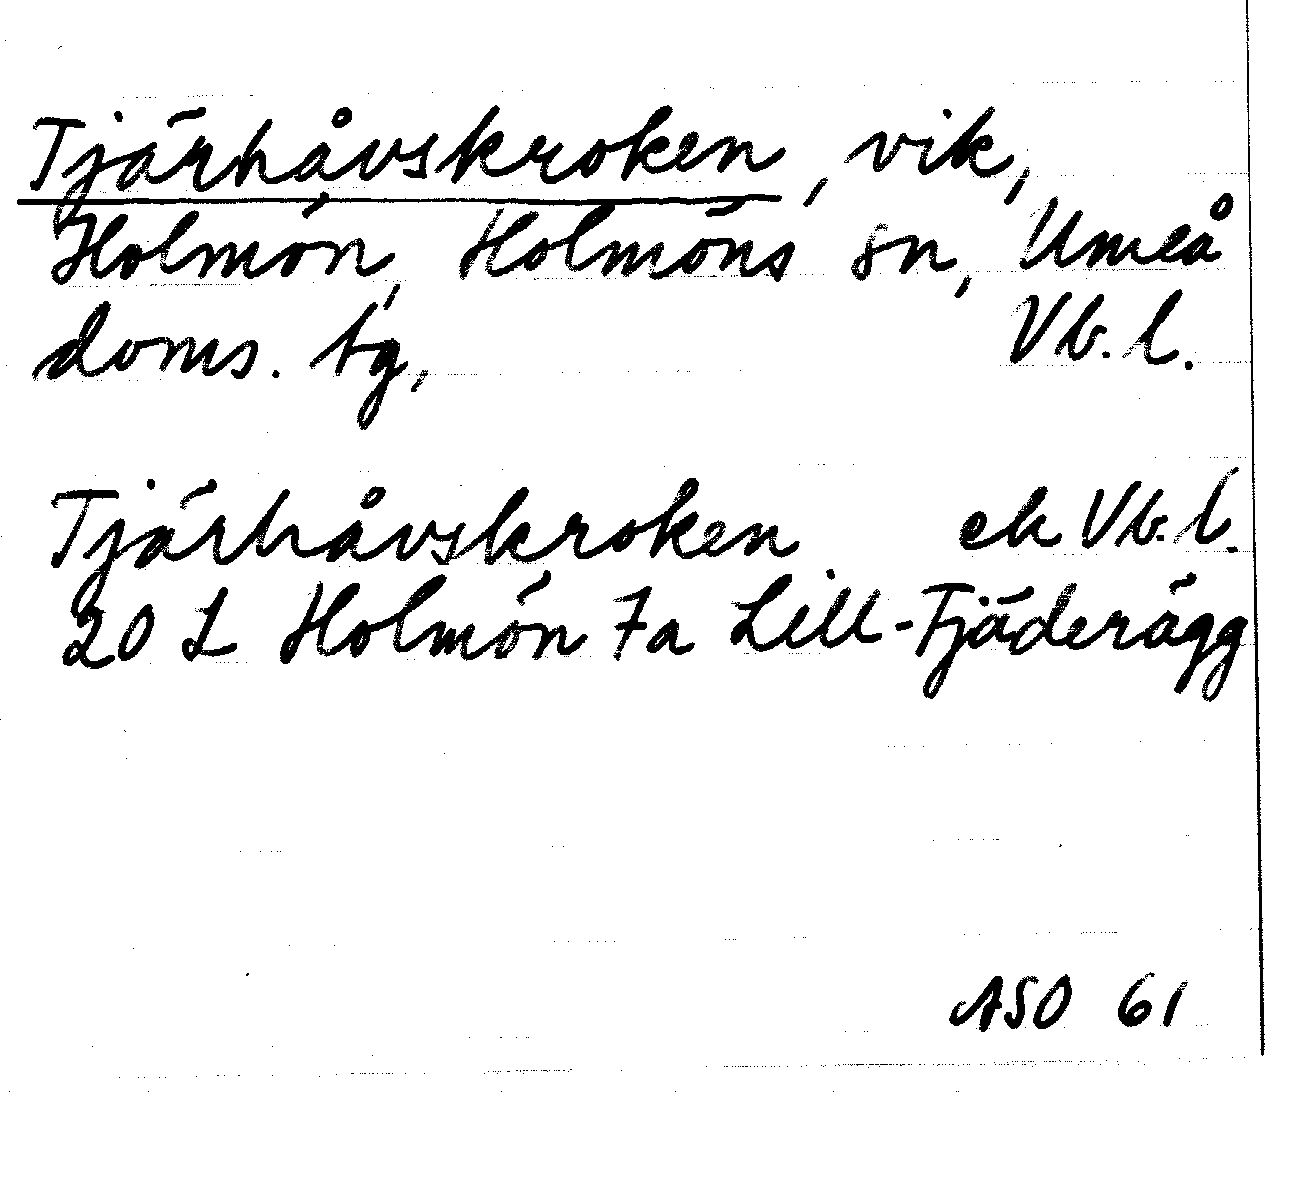 Tjärhåvskroken, vik,
Holmön, Holmöns sn, Umeå
doms. tg, Vb. l.
Tjärhåvskroken ek Vb. l.
20 L Holmön 7a Lill-Fjäderägg
ASO 61